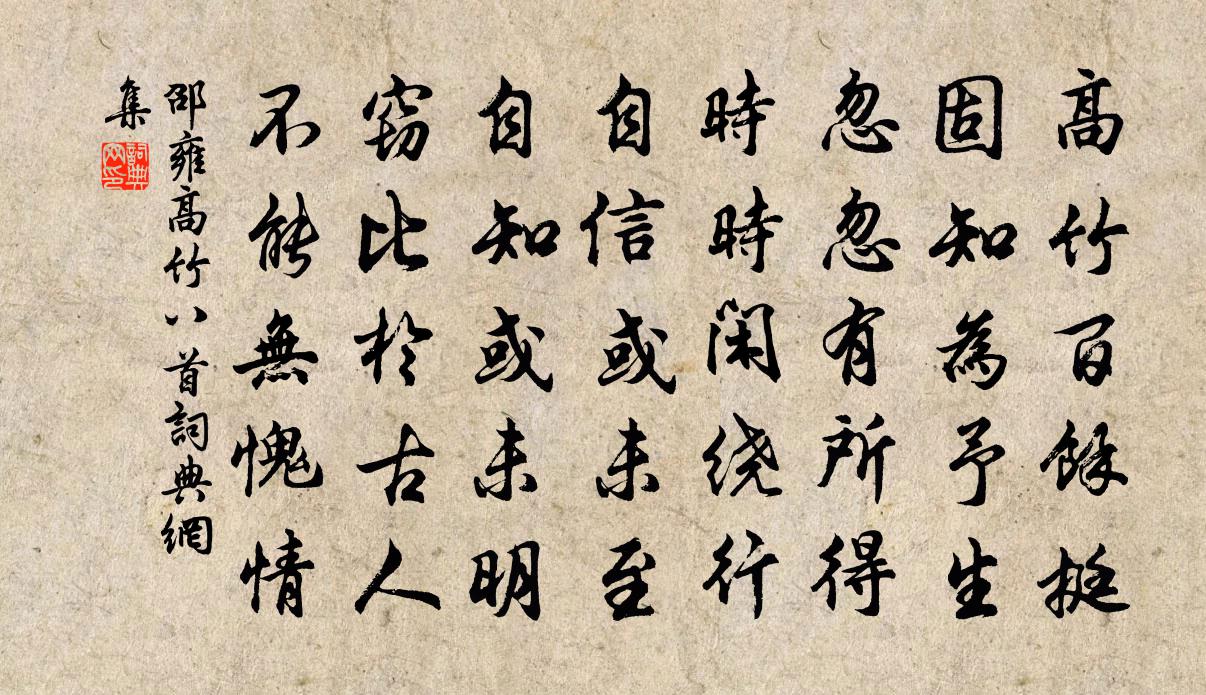 高竹百餘挺
固知為予生
忽忽有所得
時時閑繞行
自信或未至
自知或未明
竊比於古人
不能無愧情
邵雍高竹八首詞典網
集
詞典
网印